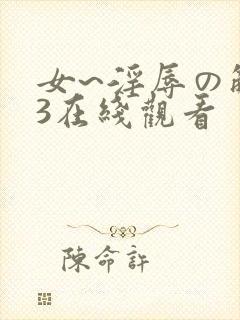 女~淫辱の
3在綫觀看
陳命許